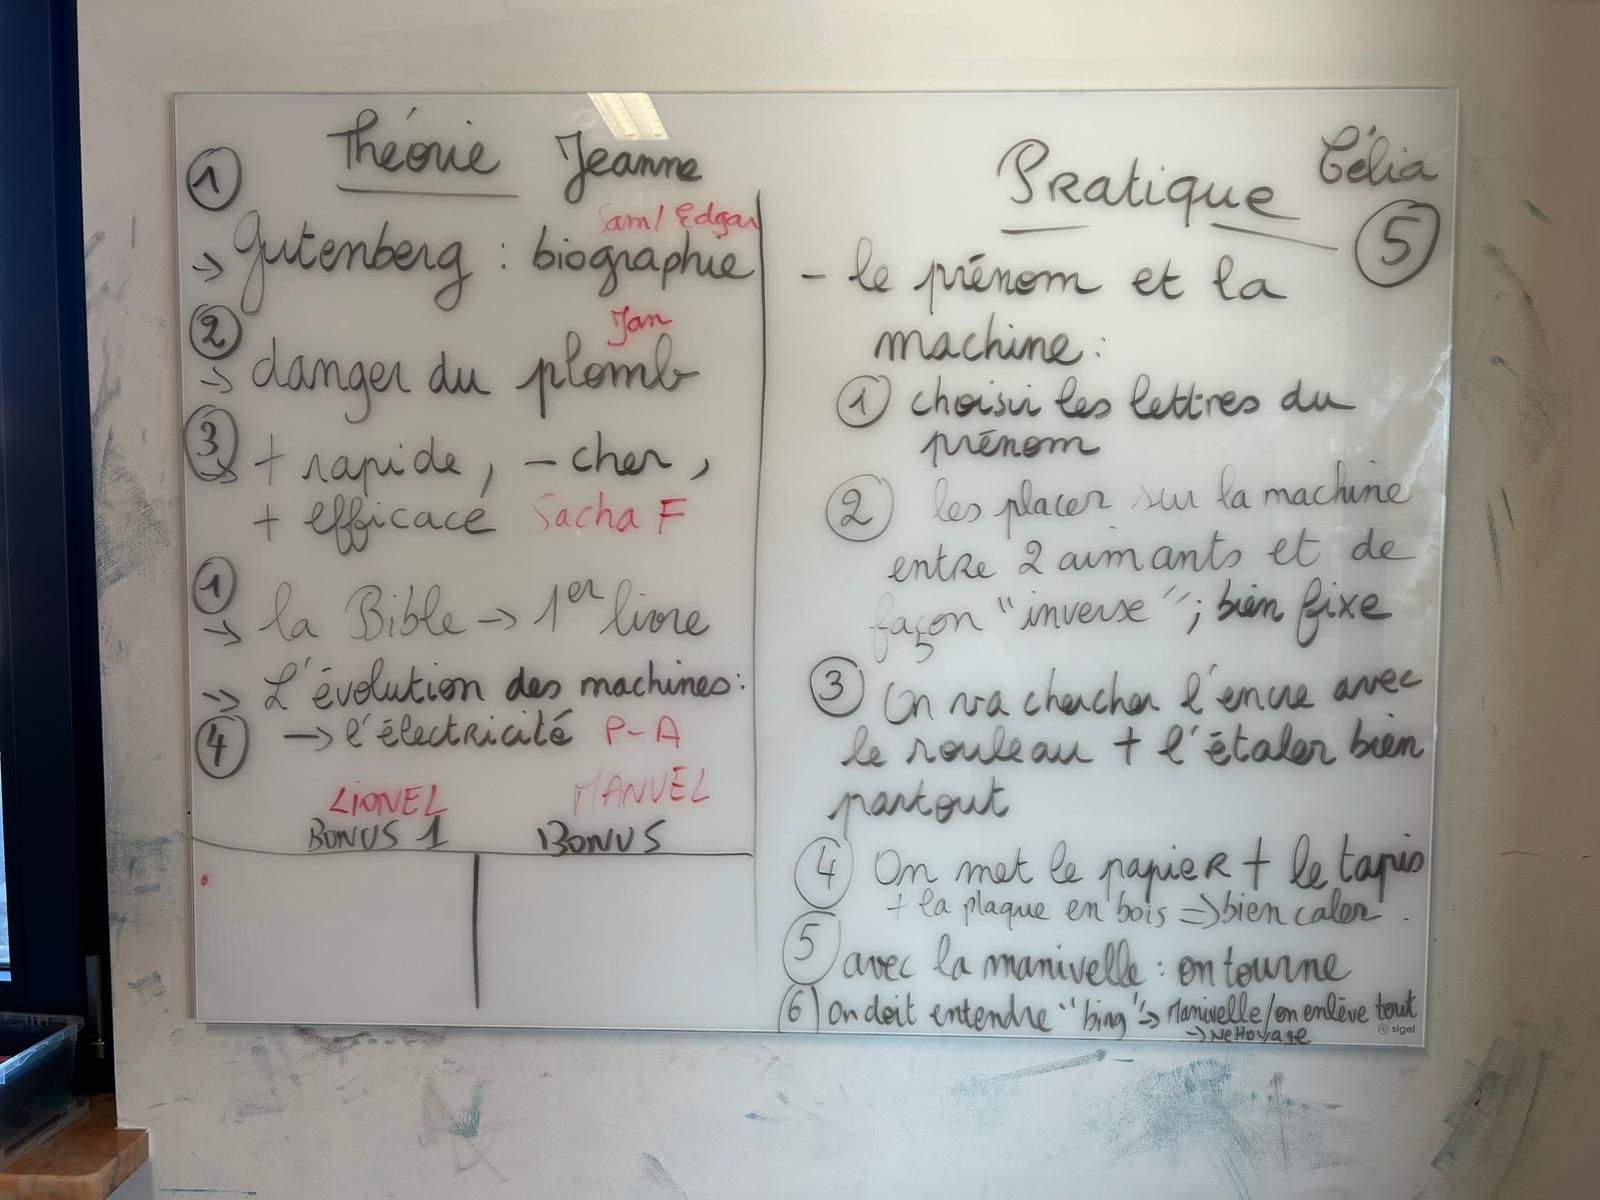 Théorie Jeanne
①
Sam/ Edgar
→ Gutenberg : biographie
② Jan
→ danger du plomb
③ → + rapide, - cher,
+ efficace Sacha F
①
→ la Bible → 1er livre
→ L'évolution des machines:
④ → l'électricité P-A
LIONEL MANUEL
BONUS 1 BONUS
Pratique Célia
⑤
- le prénom et la
machine:
① choisir les lettres du
prénom
② les placer sur la machine
entre 2 aimants et de
façon "inverse"; bien fixe
③ On va chercher l'encre avec
le rouleau + l'étaler bien
partout
④ On met le papier + le tapis
+ la plaque en bois => bien caler.
⑤ avec la manivelle: on tourne
⑥ On doit entendre "bing" → Manivelle/on enlève tout
→ Nettoyage
sigel